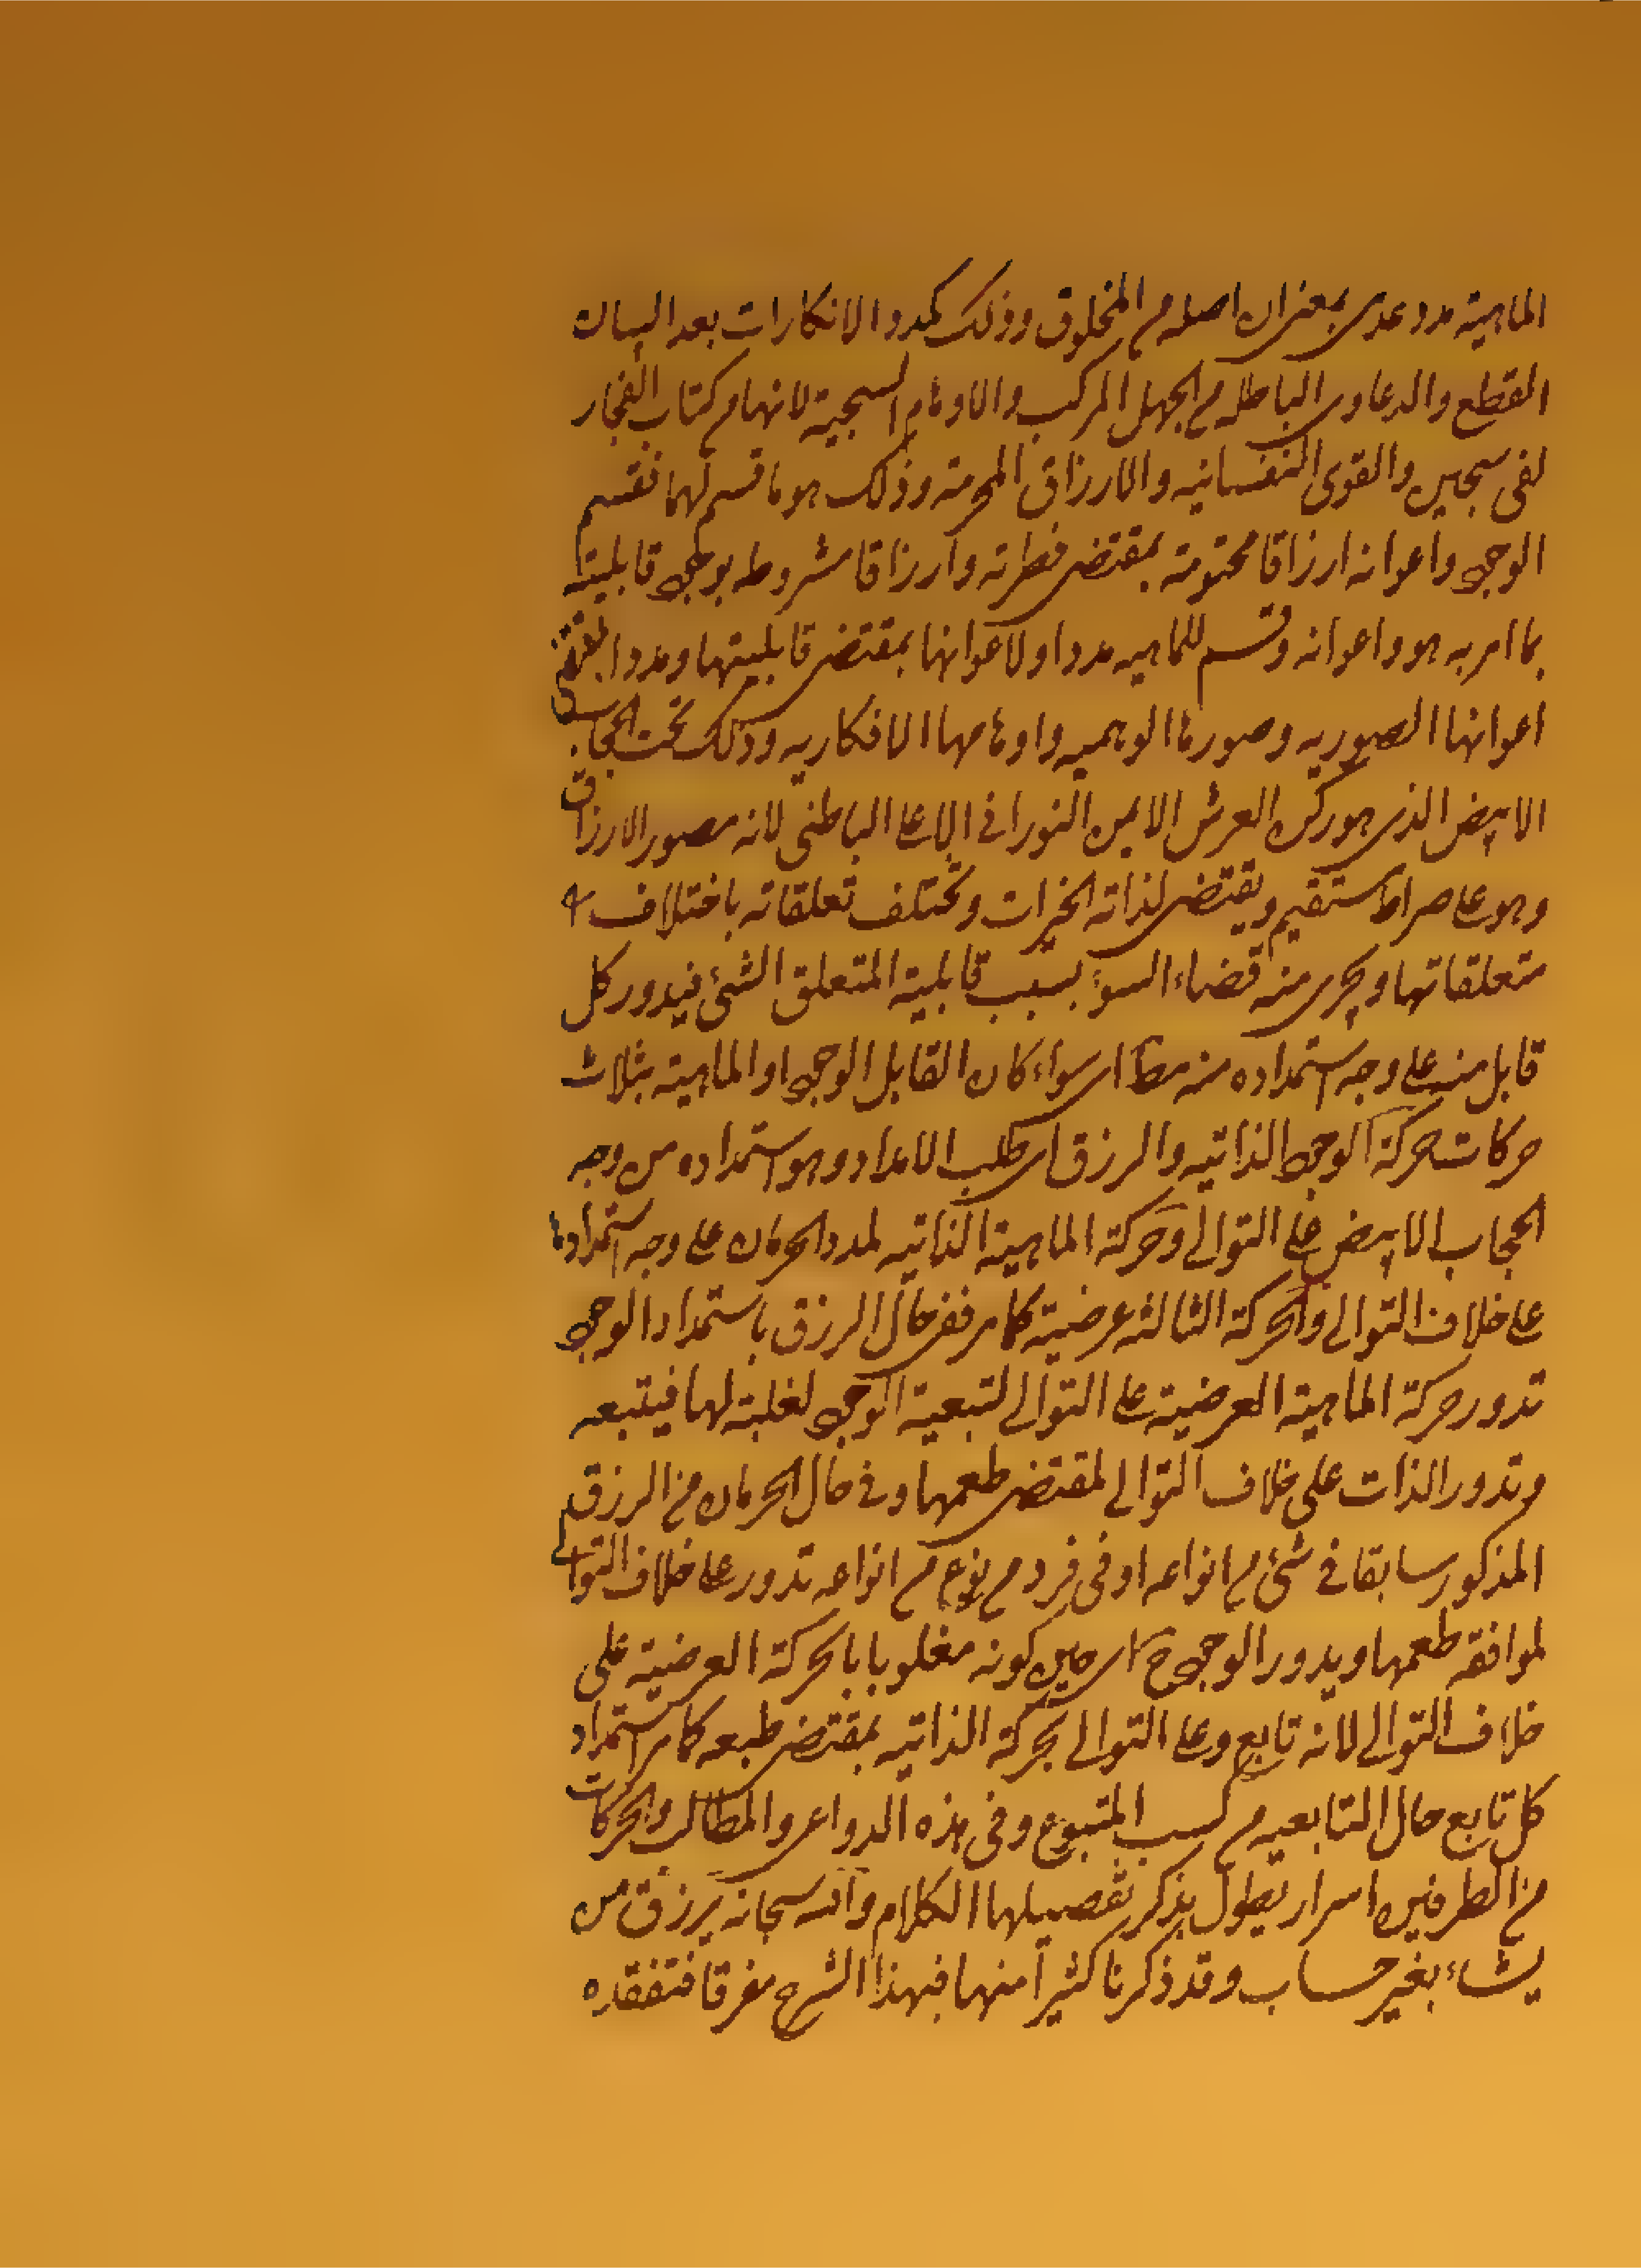 الماهية مدد عدمي بمعنى ان اصله من المخلوق وذلك كمدد الانكارات بعد البيان
المقطع والدعاوى الباطله من الجهل المركب والاوهام السجية لانها من كتاب الفجار
لفى سجين والقوى النفسانيه والارزاق المحرمة وذلك هو ما قسم لهما فقسم
الوجو واعوانه ارزاقا محتومة بمقتضى فطرته وارزاقا مشروطه بوجو قابليته
بما امر به هو واعوانه وقسم للماهيه مددا ولاعوانها بمقتضى قابليتها ومددا بمقتضى
اعوانها الصوريه وصورها الوهميه واوهامها الافكاريه وذلك تحت الحجاب
الابيض الذى هو ركن العرش الايمن النورانى الاعلى الباطنى لانه مصور الارزاق
وهو على صراط مستقيم ويقتضى لذاته الخيرات وتختلف تعلقاته باختلاف
متعلقاتها ويجرى منه قضاء السوء بسبب قابلية المتعلق الشئ فيدور كل
قابل منه على وجه استمداده منه مط اى سواء كان القابل الوجو او الماهية بثلاث
حركات حركة الوجو الذاتيه والرزق اى طلب الامداد وهو استمداده من وجه
الحجاب الابيض على التوالى وحركة الماهية الذاتيه لمدد الحرمان على وجه استمدادها
على خلاف التوالى والحركة الثالثه عرضية كما مر ففى حال الرزق باستمداد الوجو
تدور حركة الماهية العرضية على التوالى لتبعية الوجو لغلبة لها فيتبعه
وتدور الذات على خلاف التوالى لمقتضى طعمها وفى حال الحرمان من الرزق
المذكور سابقا فى شئ من انواعه او فى فرد من نوع من انواعه تدور على خلاف التوالى
لموافقه طعمها ويدور الوجو ح اى حين كونه مغلوبا بالحركة العرضية على
خلاف التوالى لانه تابع وعلى التوالى بحركة الذاتيه بمقتضى طبعه كما مر استمداد
كل تابع حال التابعيه من كسب المتبوع وفى هذه الدواعى والمطالب والحركات
من الطرفين اسرار يطول بذكر تفصيلها الكلام والله سبحانه يرزق من
يشاء بغير حساب وقد ذكرنا كثيرا منها فيهذا الشرح مفرقا فتفقده